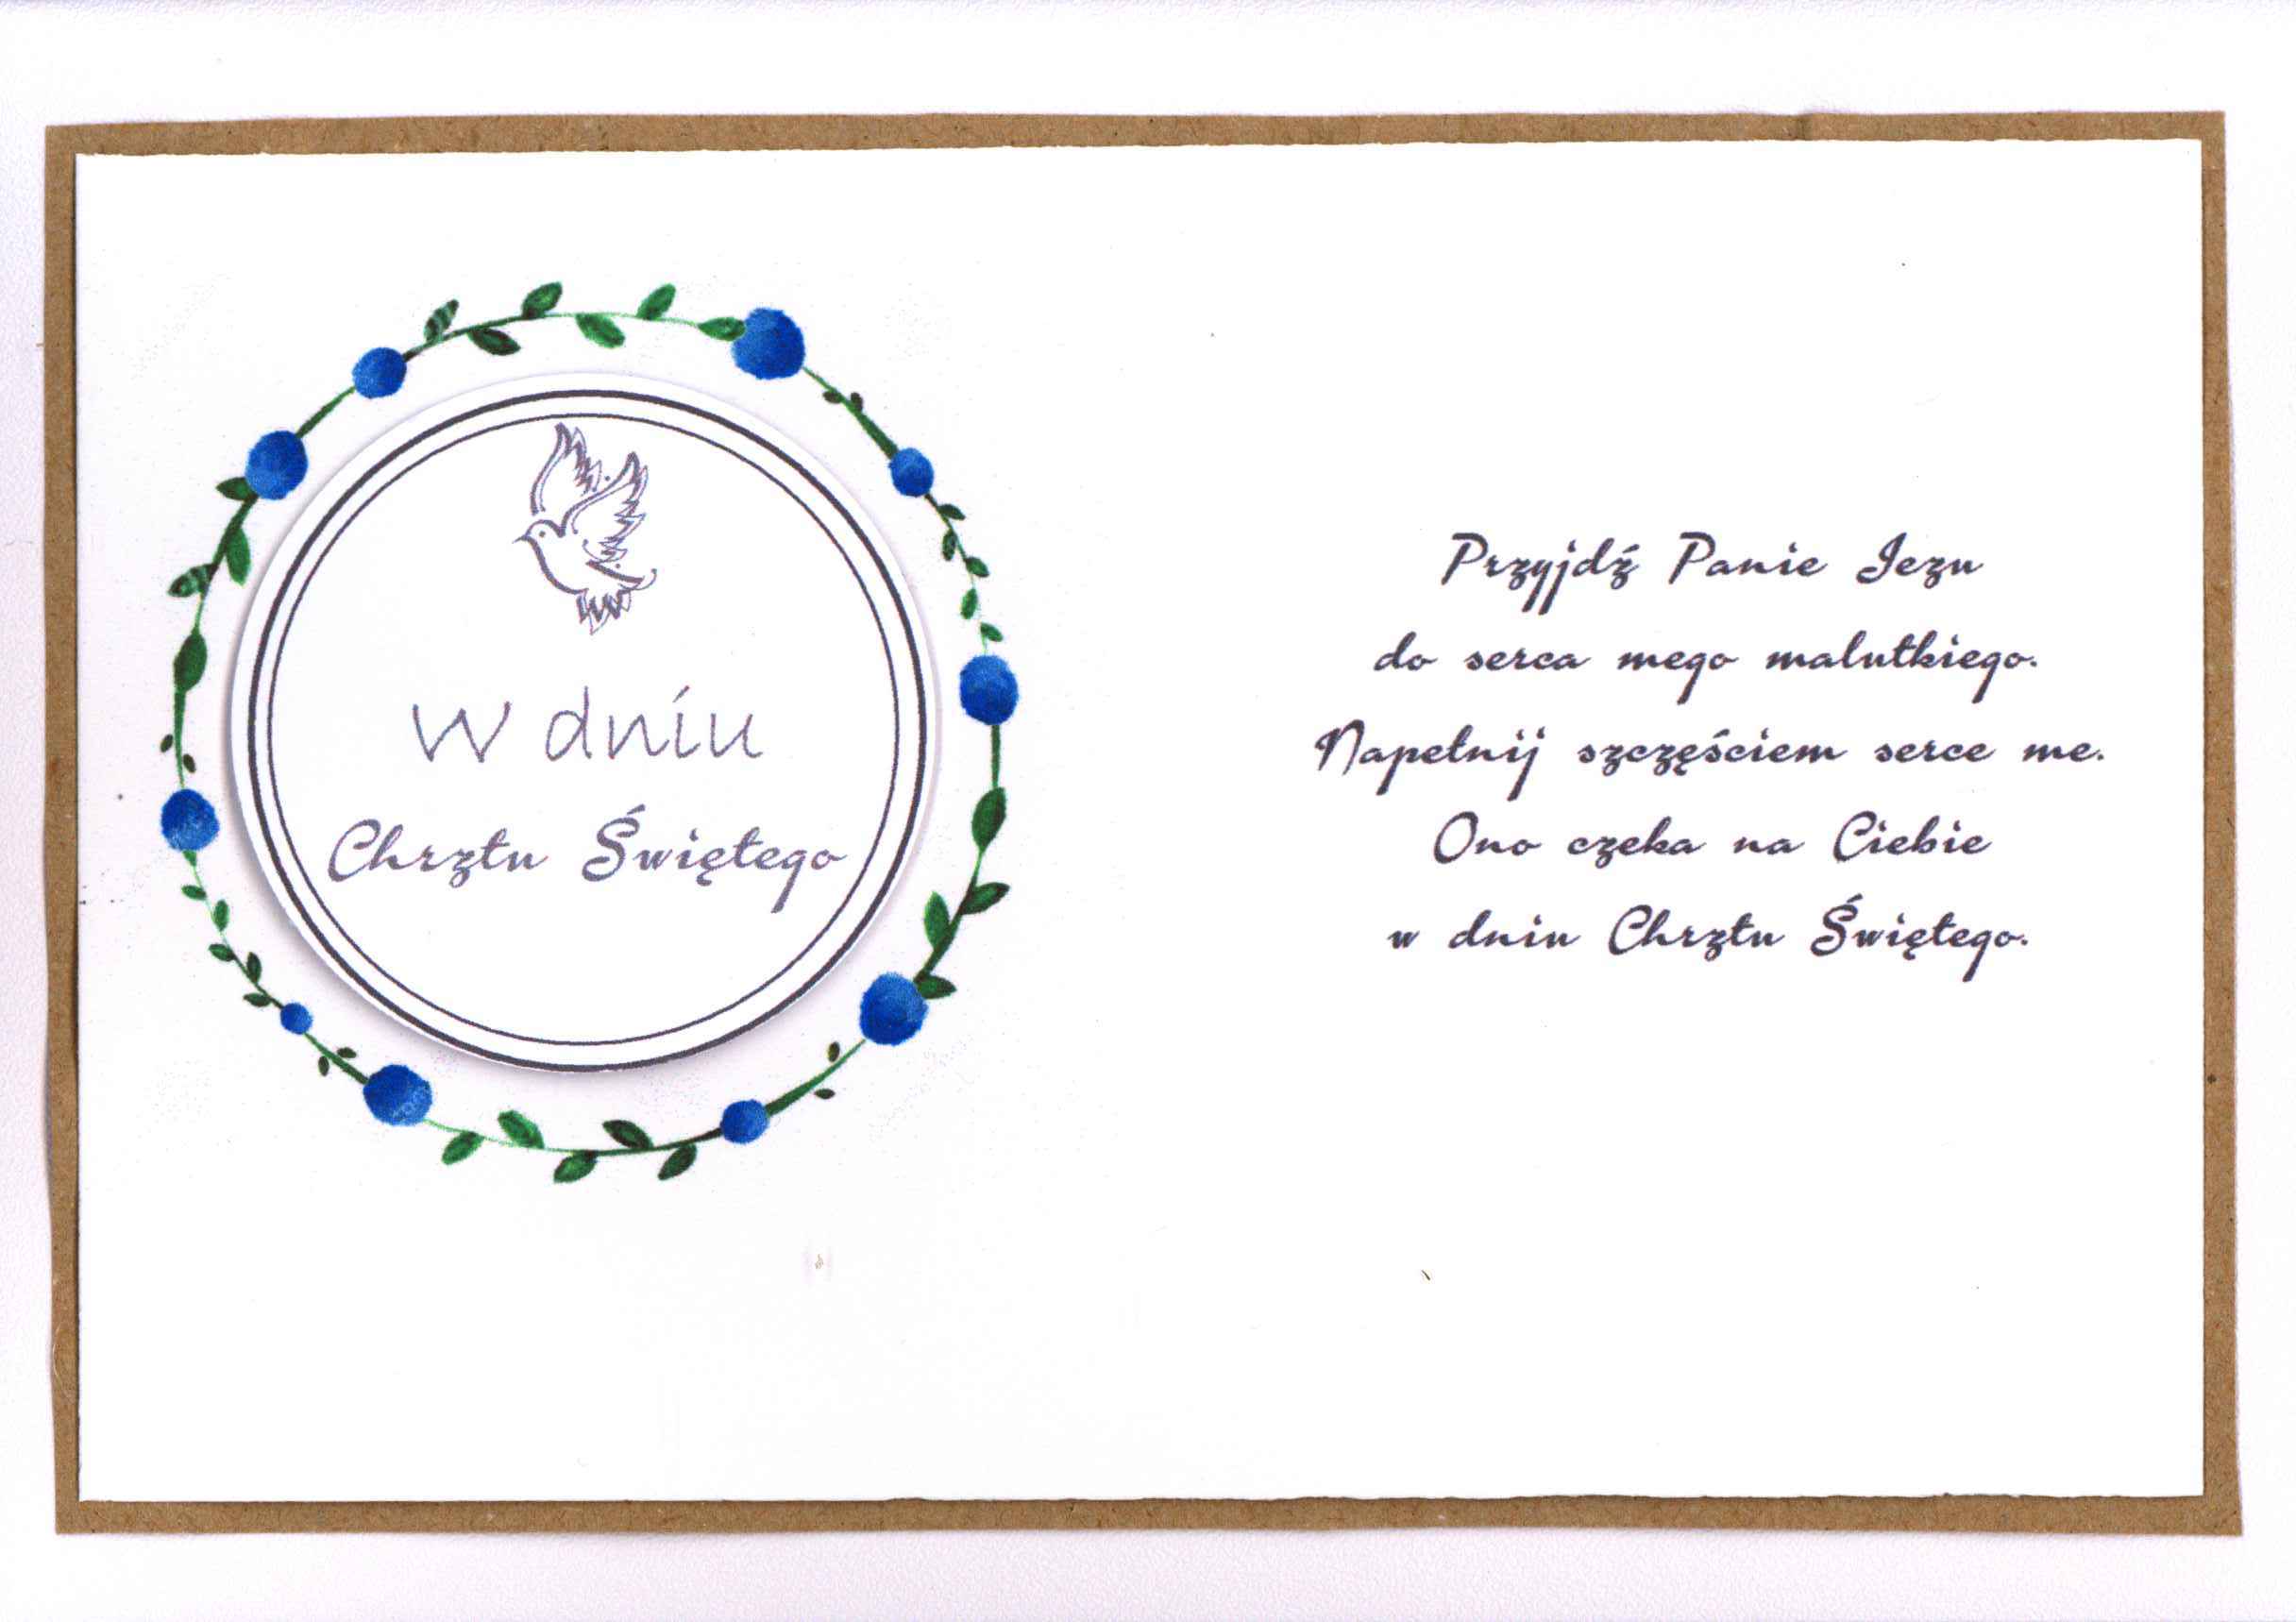 W dniu
Chrztu Świętego
Przyjdź Panie Jezu
do serca mego malutkiego.
Napełnij szczęściem serce me.
Ono czeka na Ciebie
w dniu Chrztu Świętego.